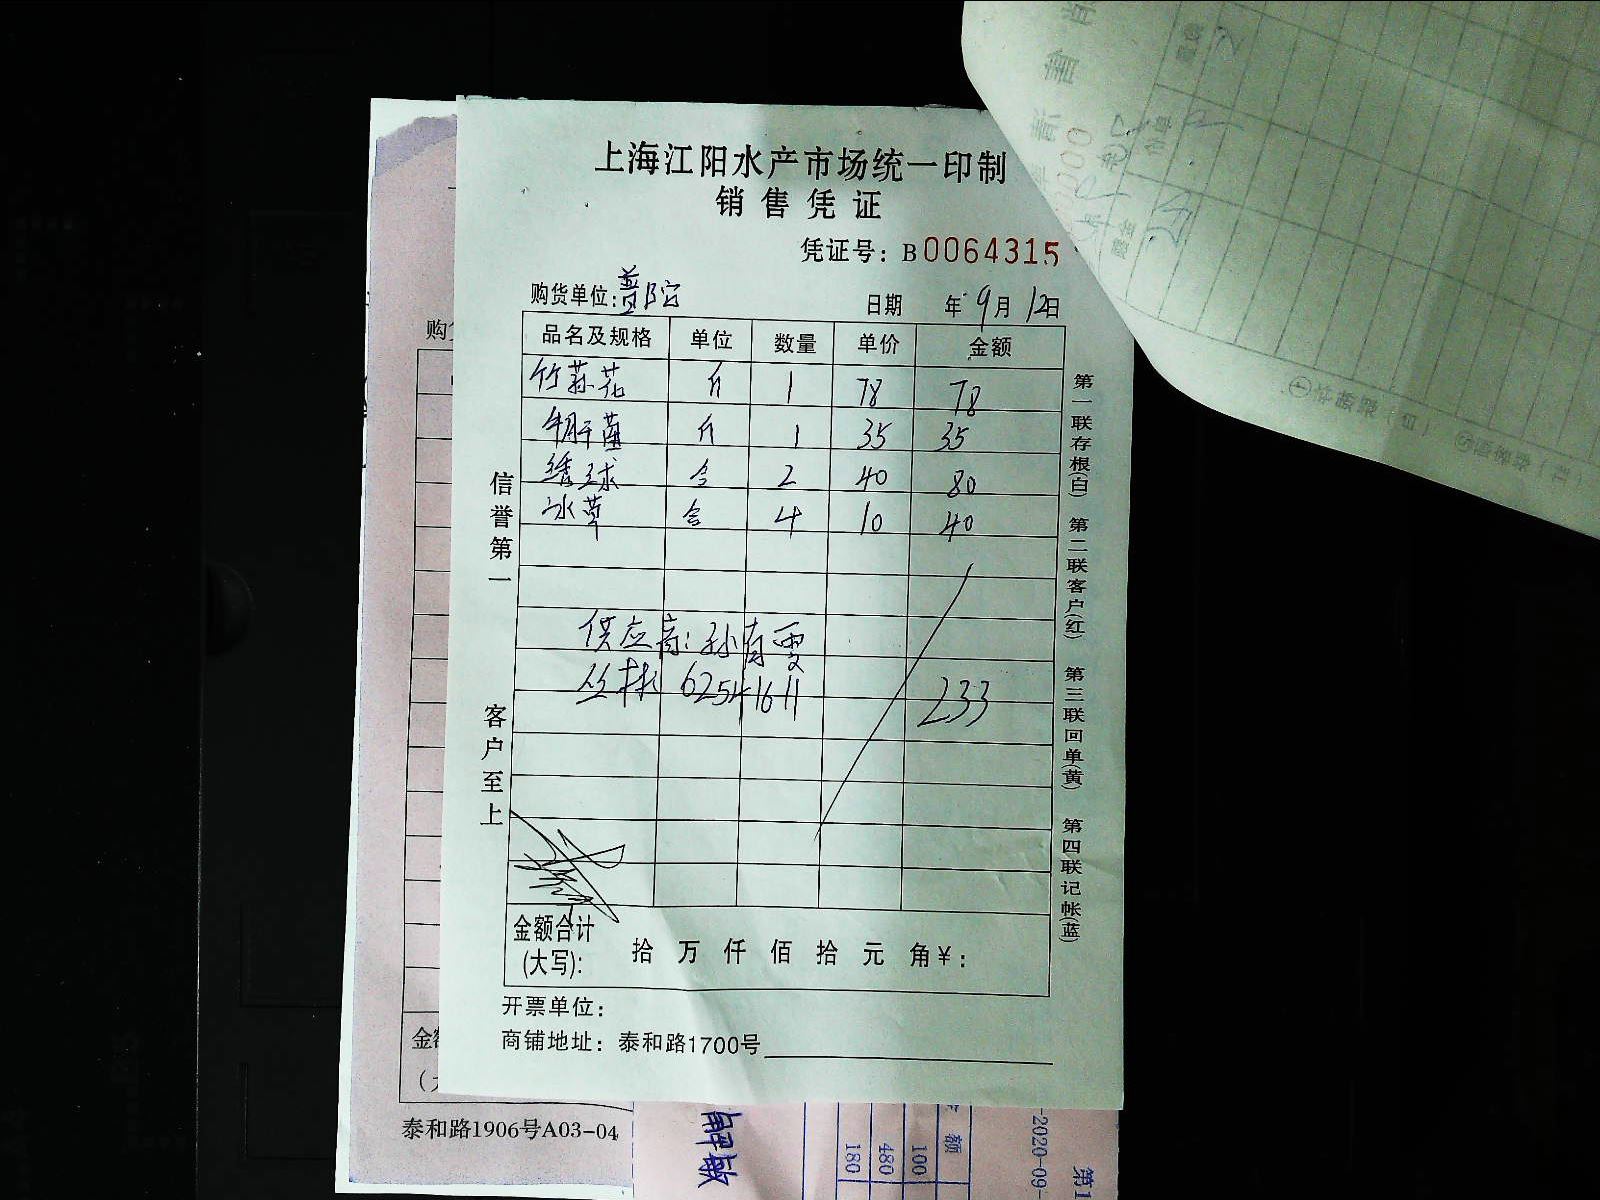 上海江阳水产市场统一印制
销售凭证
凭证号：B0064315
购货单位：普陀 日期 年 9月 12日
品名及规格 单位 数量 单价 金额
竹荪花 斤 1 78 78
牛肝菌 斤 1 35 35
绣球 合 2 40 80
冰草 合 4 10 40
供应商：孙育雯
丛林 62541611 233
金额合计
(大写)： 拾 万 仟 佰 拾 元 角¥：
开票单位：
商铺地址：泰和路1700号
信誉第一 客户至上
第一联存根(白) 第二联客户(红) 第三联回单(黄) 第四联记帐(蓝)
泰和路1906号A03-04
额
100
480
180
-2020-09-